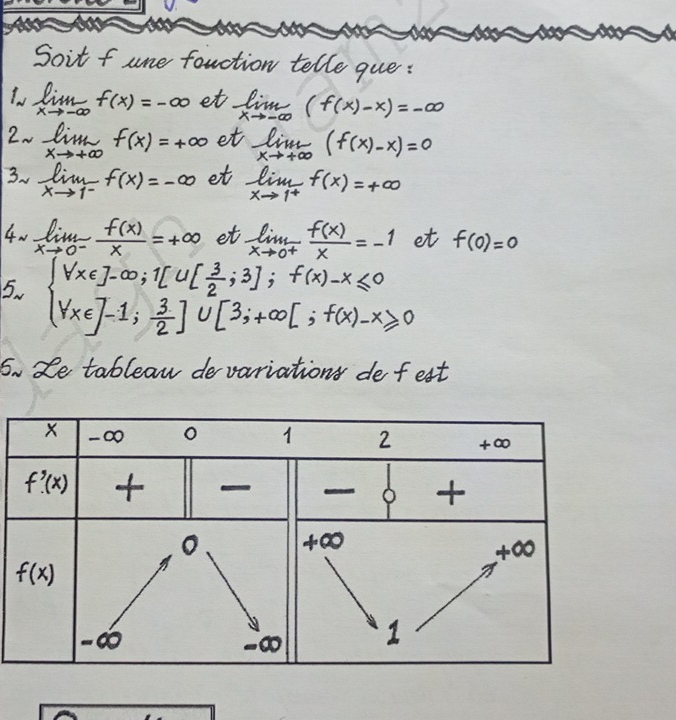 Soit f une fonction telle que :
1~ lim x→-∞ f(x) = -∞ et lim x→-∞ (f(x)-x) = -∞
2~ lim x→+∞ f(x) = +∞ et lim x→+∞ (f(x)-x) = 0
3~ lim x→1⁻ f(x) = -∞ et lim x→1⁺ f(x) = +∞
4~ lim x→0⁻ f(x)/x = +∞ et lim x→0⁺ f(x)/x = -1 et f(0)=0
5~ { ∀x∈]-∞;1[ ∪ [3/2;3] ; f(x)-x ⩽ 0
∀x∈]-1; 3/2] ∪ [3;+∞[ ; f(x)-x ⩾ 0
6~ Le tableau de variations de f est
x -∞ 0 1 2 +∞
f'(x) + - - 0 +
0 +∞ +∞
f(x)
-∞ -∞ 1